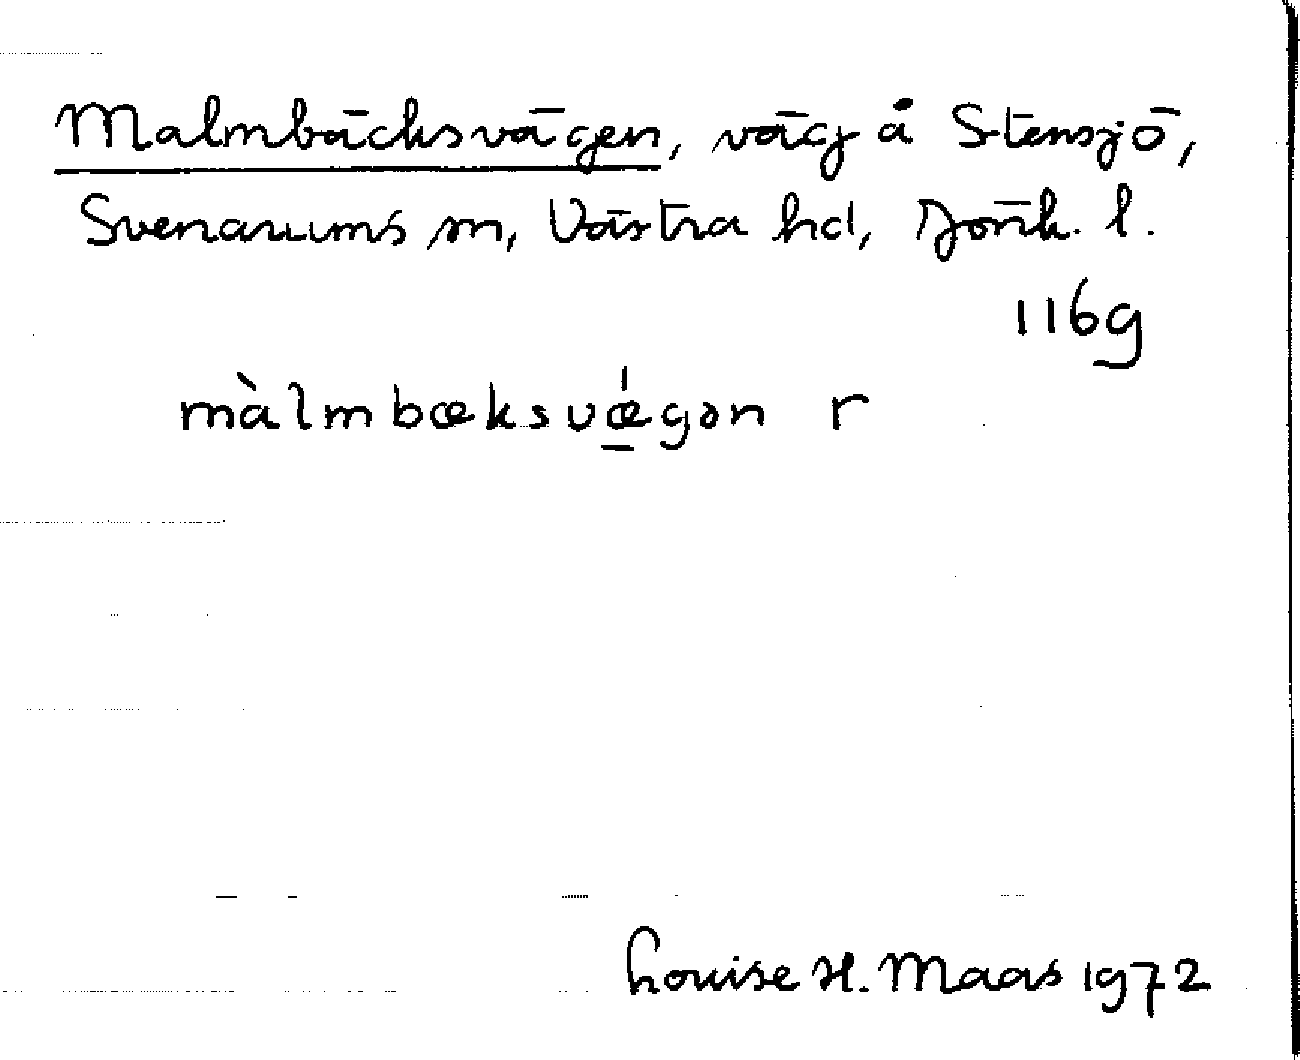 Malmbäcksvägen, väg å Stensjö,
Svenarums sn, Västra hd, Jönk. l.
116g
màlmbæksvǽ̱gən r
Louise H. Maas 1972